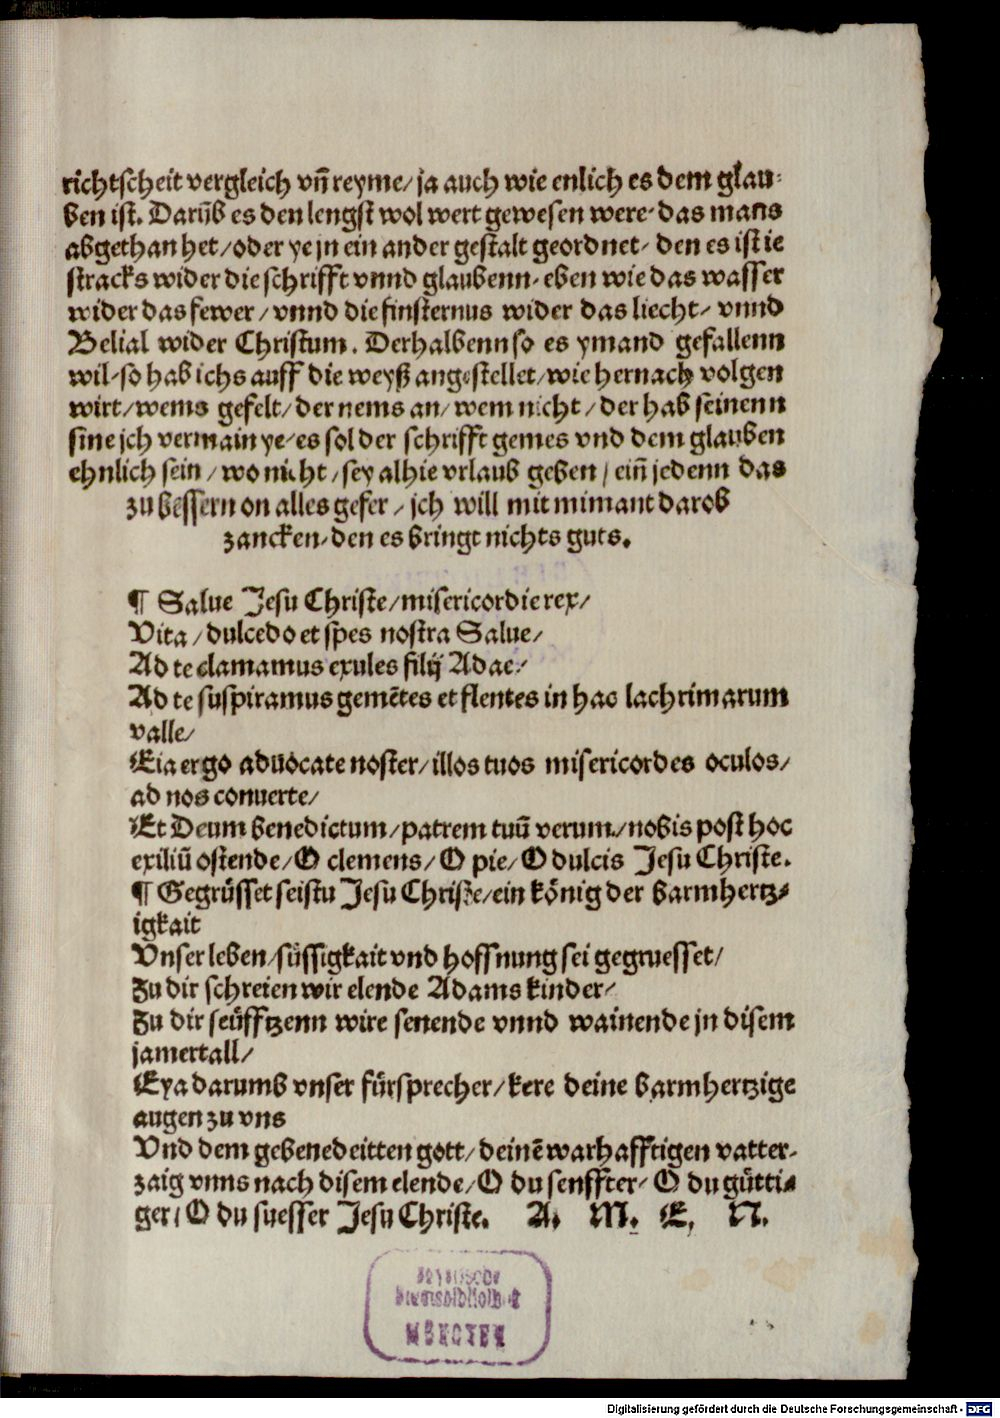 richtscheit vergleich vñ reyme/ ja auch wie enlich es dem glau-
ben ist. Darüb es den lengst wol wert gewesen were- das mans
abgethan het/ oder ye jn ein ander gestalt geordnet- den es ist ie
stracks wider die schrifft vnnd glaubenn- eben wie das wasser
wider das fewer/ vnnd die finsternus wider das liecht/ vnnd
Belial wider Christum. Derhalbenn so es ymand gefallenn
wil- so hab ichs auff die weyß angestellet/ wie hernach volgen
wirt/ wems gefelt/ der nems an/ wem nicht/ der hab seinenn
sine jch vermain ye/ es sol der schrifft gemes vnd dem glauben
ehnlich sein/ wo nicht/ sey alhie vrlaub geben/ eiñ jedenn das
zu bessern on alles gefer/ jch will mit mimant darob
zancken- den es bringt nichts guts.
¶ Salue Jesu Christe/ misericordie rex/
Vita/ dulcedo et spes nostra Salue/
Ad te clamamus exules filij Adae/
Ad te suspiramus gemētes et flentes in hac lachrimarum
valle/
Eia ergo aduocate noster/ illos tuos misericordes oculos/
ad nos conuerte/
Et Deum benedictum/ patrem tuū verum/ nobis post hoc
exiliū ostende/ O clemens/ O pie/ O dulcis Jesu Christe.
¶ Gegrüsset seistu Jesu Christe/ ein könig der barmhertz-
igkait
Vnser leben/ süssigkait vnd hoffnung sei gegruesset/
Zu dir schreien wir elende Adams kinder/
Zu dir seüfftzenn wire senende vnnd wainende jn disem
jamertall/
Eya darumb vnser fürsprecher/ kere deine barmhertzige
augen zu vns
Vnd dem gebenedeitten gott/ deinē warhafftigen vatter-
zaig vnns nach disem elende/ O du senffter- O du gütti-
ger/ O du suesser Jesu Christe. A. M. E. N.
MÜNCHEN
Digitalisierung gefördert durch die Deutsche Forschungsgemeinschaft - DFG